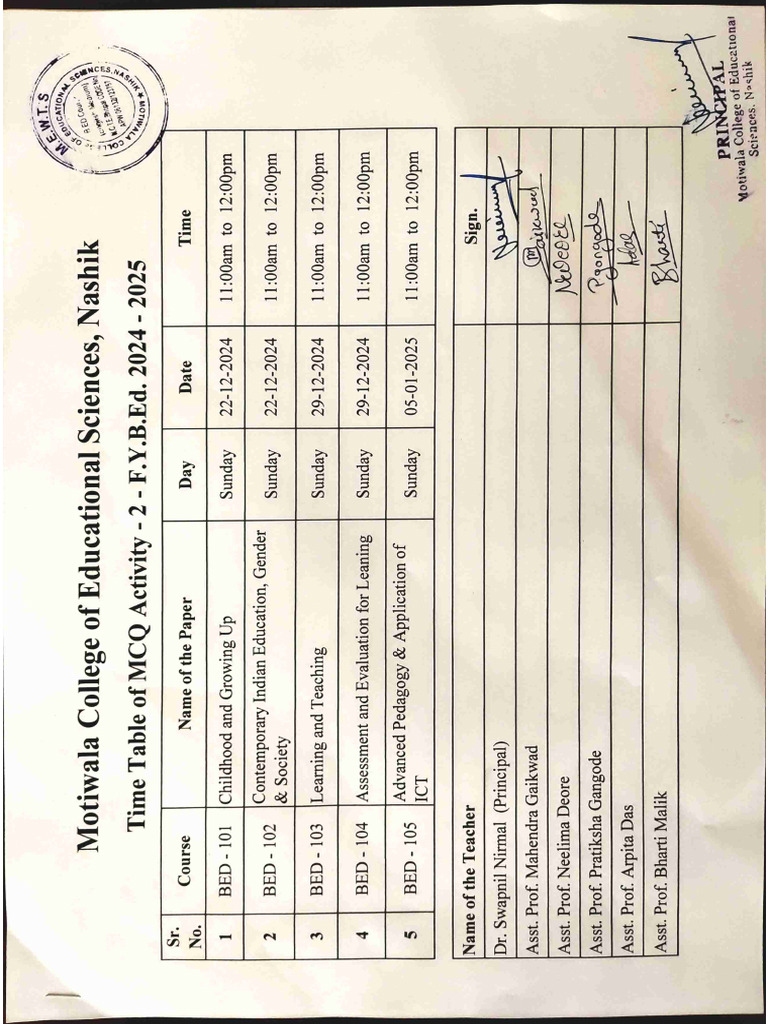 M.E.W.T.S
Motiwala College of Educational Sciences, Nashik
Time Table of MCQ Activity - 2 - F.Y.B.Ed. 2024 - 2025
Sr. No. Course Name of the Paper Day Date Time
1 BED - 101 Childhood and Growing Up Sunday 22-12-2024 11:00am to 12:00pm
2 BED - 102 Contemporary Indian Education, Gender & Society Sunday 22-12-2024 11:00am to 12:00pm
3 BED - 103 Learning and Teaching Sunday 29-12-2024 11:00am to 12:00pm
4 BED - 104 Assessment and Evaluation for Leaning Sunday 29-12-2024 11:00am to 12:00pm
5 BED - 105 Advanced Pedagogy & Application of ICT Sunday 05-01-2025 11:00am to 12:00pm
Name of the Teacher Sign.
Dr. Swapnil Nirmal (Principal)
Asst. Prof. Mahendra Gaikwad
Asst. Prof. Neelima Deore
Asst. Prof. Pratiksha Gangode Pgangode
Asst. Prof. Arpita Das
Asst. Prof. Bharti Malik Bharti
PRINCIPAL
Motiwala College of Educational
Sciences, Nashik